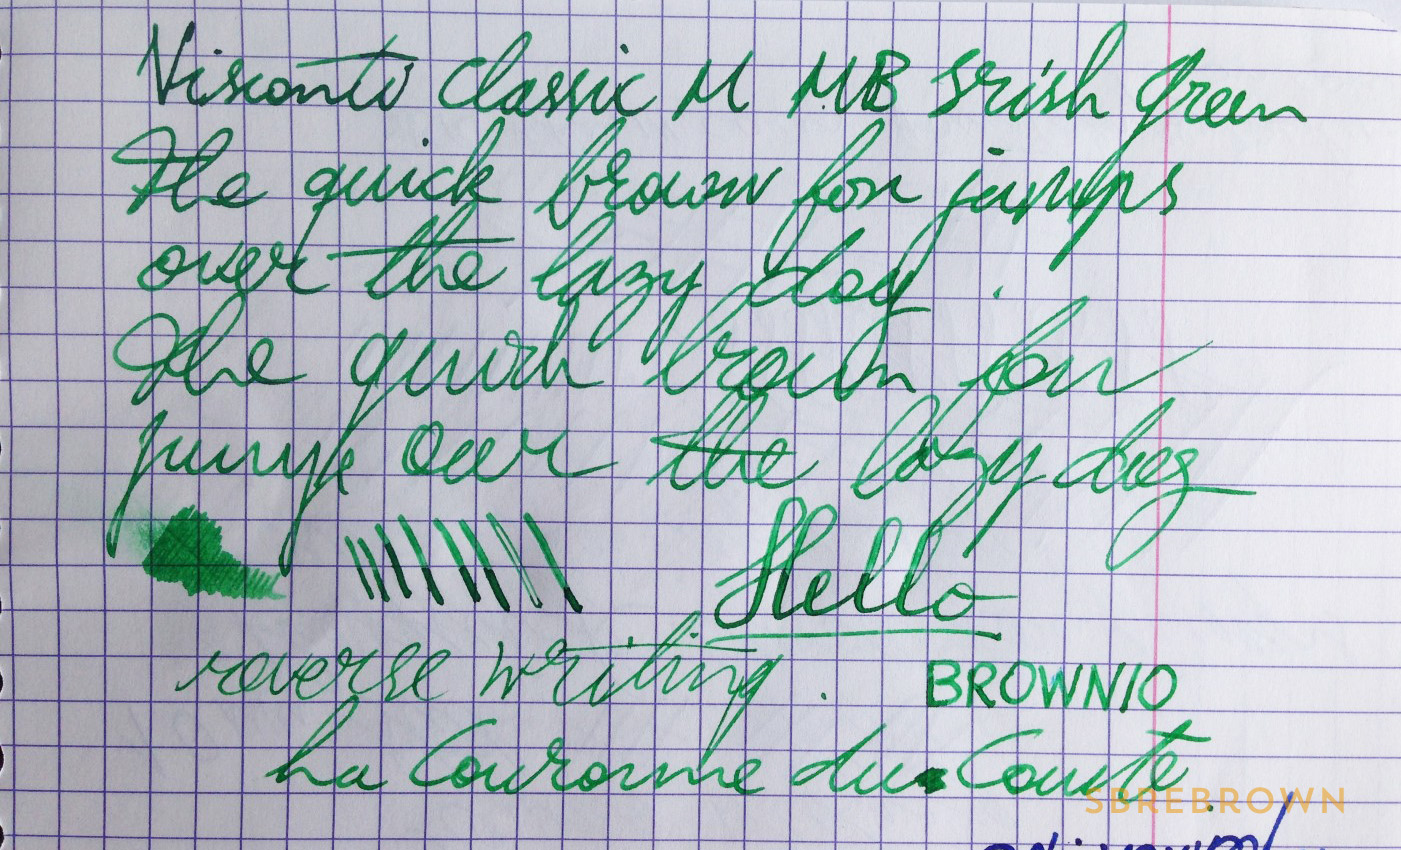 Visconti Classic M MB Irish Green
The quick brown fox jumps
over the lazy dog.
The quick brown fox
jumps over the lazy dog
Hello
reverse writing. BROWNIO
La Couronne du Comte
SBREBROWN